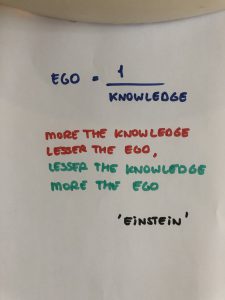 EGO = 1
KNOWLEDGE
MORE THE KNOWLEDGE
LESSER THE EGO,
LESSER THE KNOWLEDGE
MORE THE EGO
'EINSTEIN'